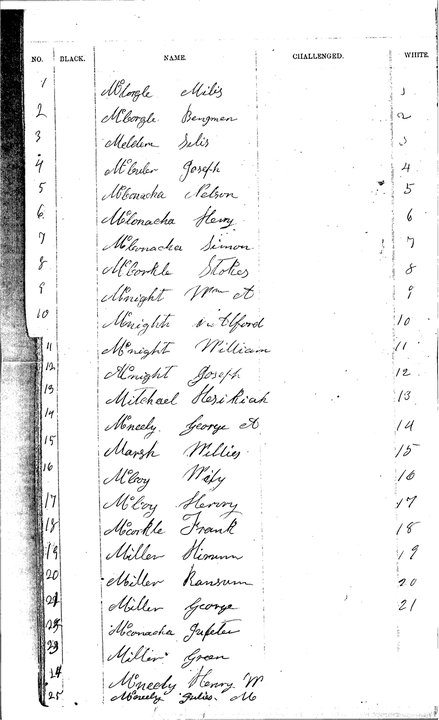 NO. BLACK. NAME. CHALLENGED. WHITE.
1 McCorgle Milis 1
2 McCorgle Bengmen 2
3 Meldern Silis 3
4 McCuler Joseph 4
5 McConacha Nelson 5
6 McConacha Henry 6
7 McConacha Simon 7
8 McCorkle Stokes 8
9 McNight Wm A 9
10 McNight Alford 10
11 McNight William 11
12 McNight Joseph 12
13 Mitchael Hesikiah 13
14 McNeely George A 14
15 Marsh Willies 15
16 McCoy Wify 16
17 McCoy Henry 17
18 McCorkle Frank 18
19 Miller Hirrum 19
20 Miller Ransum 20
21 Miller George 21
McConacha Jupiter
23 Miller Green
24 McNeely Henry W
25 McNeely Julies M